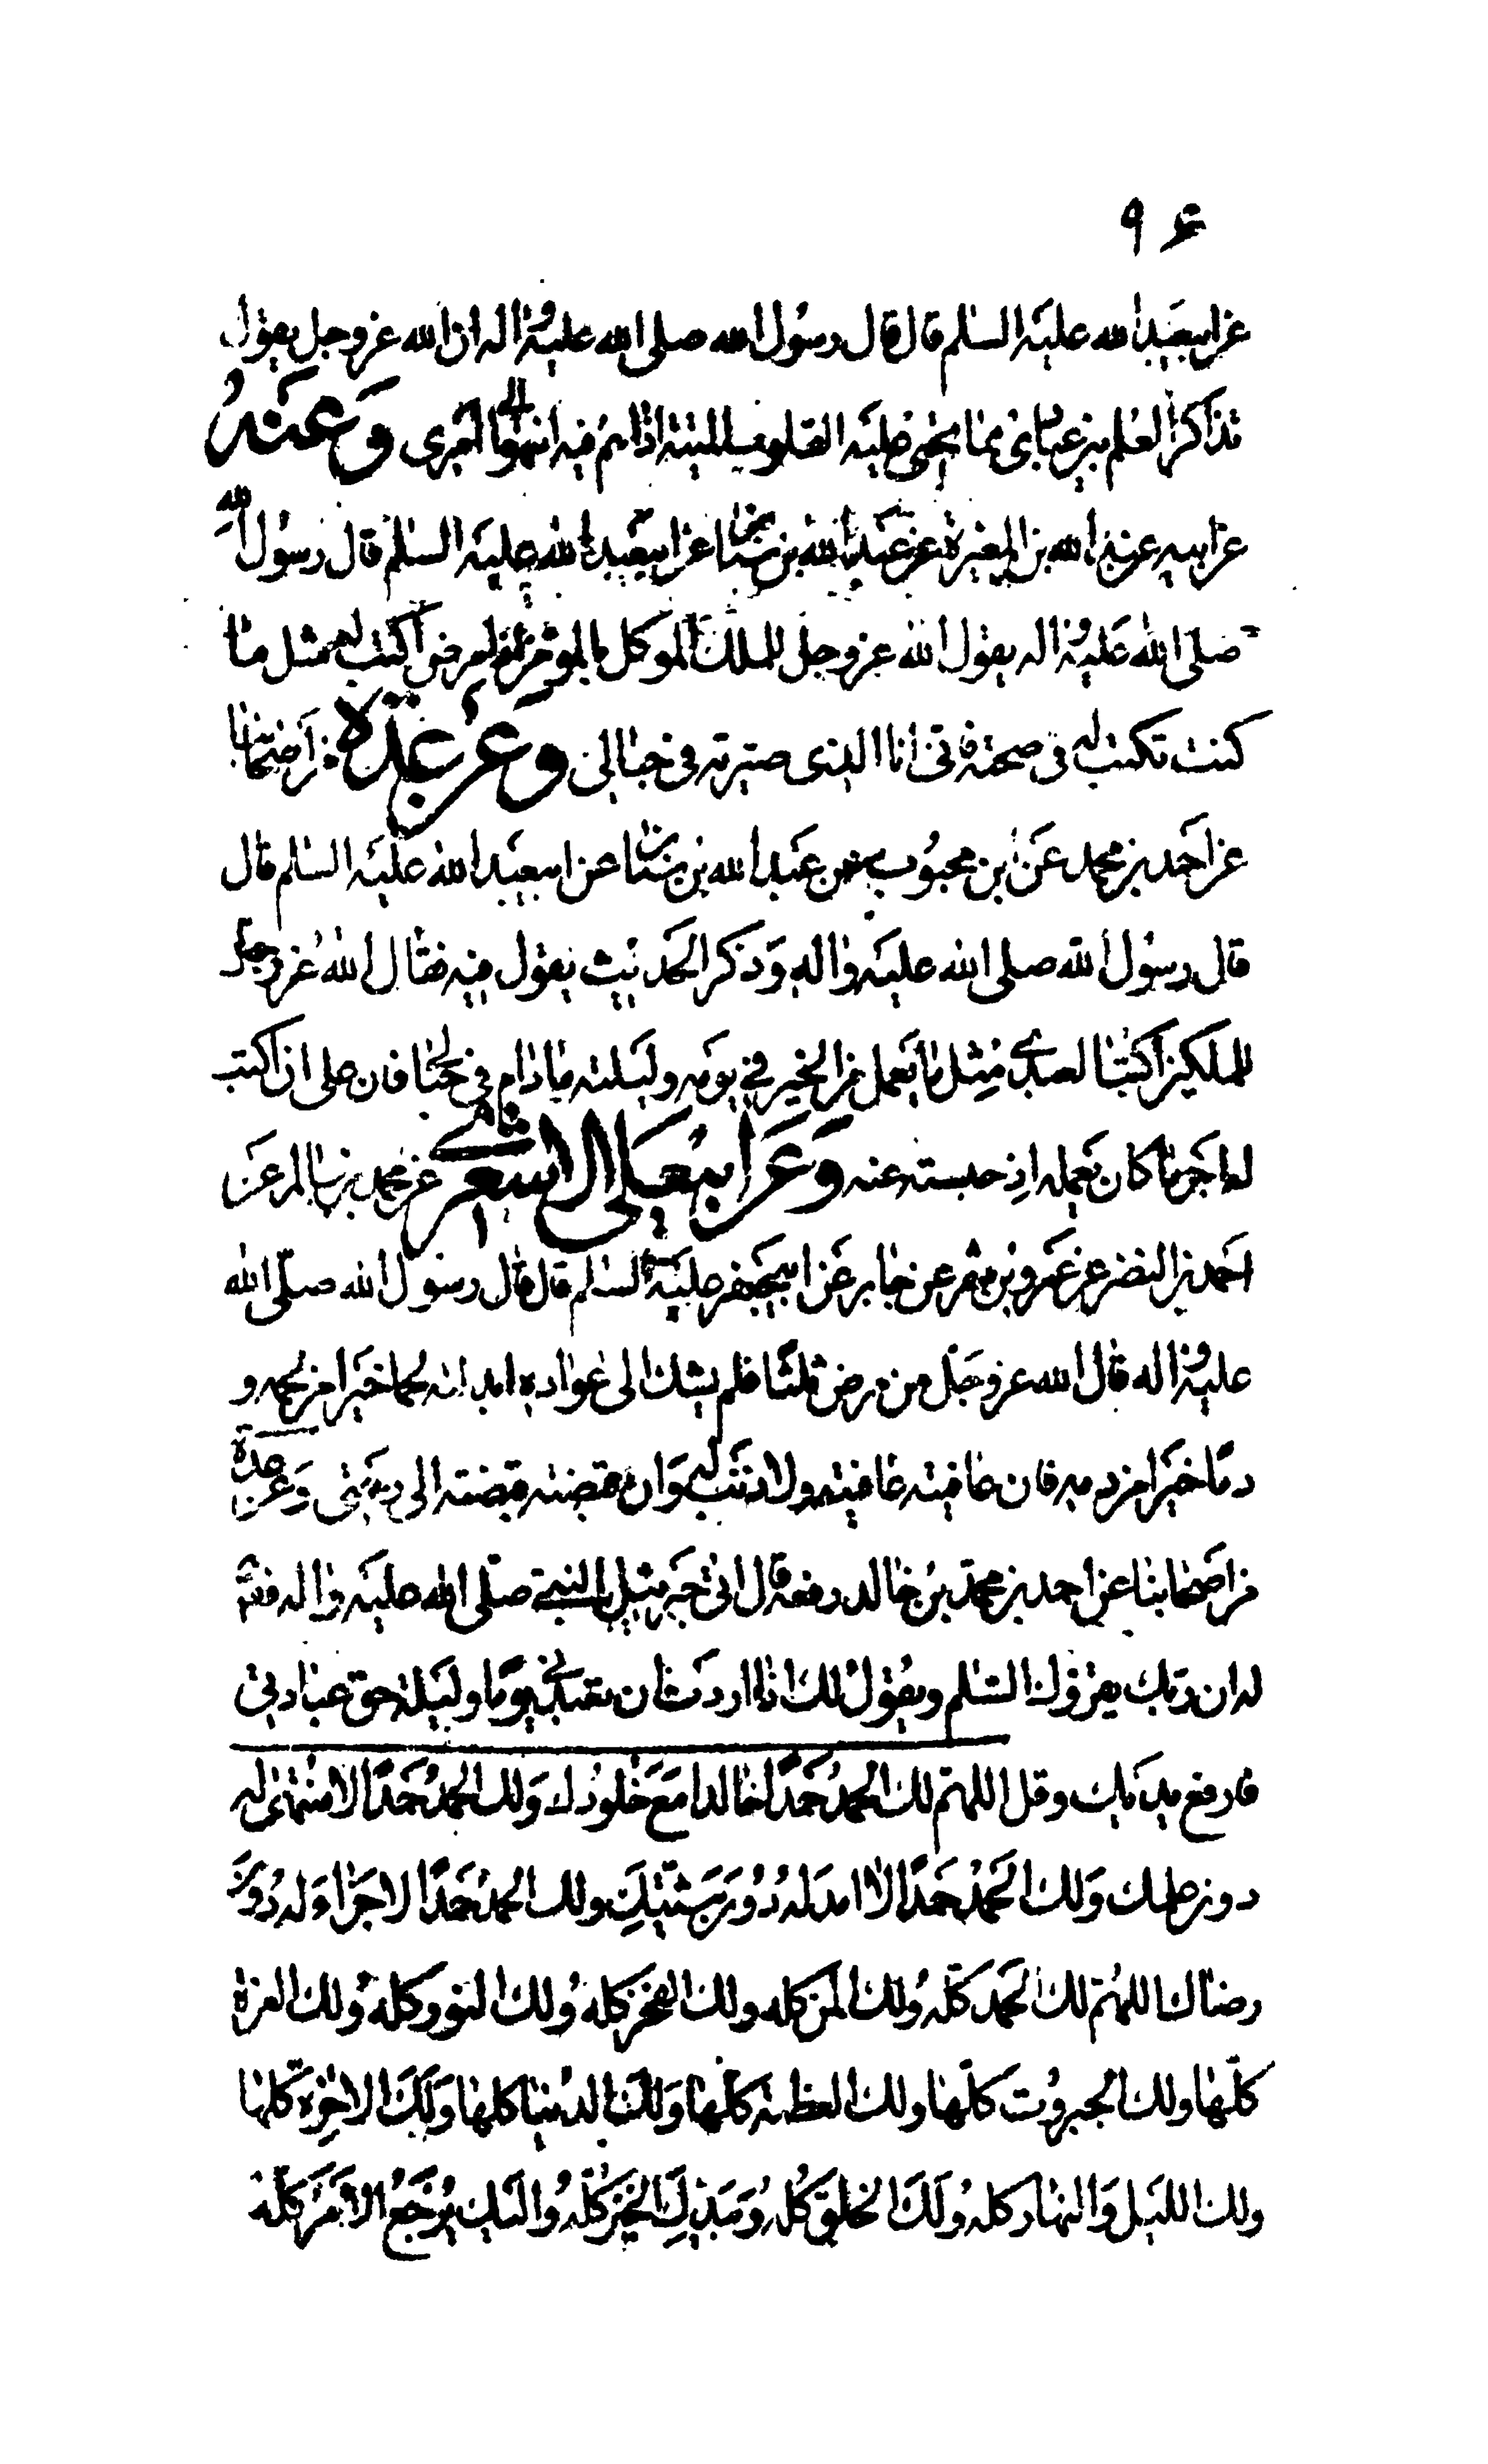 ٩۶
عن ابیعبد الله علیه السلم قال قال رسول الله صلی الله علیه واله ان الله عز وجل یقول
تذاکر العلم بین عبادی مما یحیی علیه القلوب المیتة اذا هم فیه انتهوا الی امری وعنه
عن ابیه عن عبد الله بن المغیرة عن عبد الله بن سنان عن ابیعبد الله علیه السلم قال رسول الله
صلی الله علیه واله یقول الله عز وجل للملك الموکل بالمؤمن اذا مرض اکتب له مثل ما
کنت تکتب له فی صحته فانی انا الذی صیرته فی حبالی وعن عدة من اصحابنا
عن احمد بن محمد عن ابن محبوب عن عبد الله بن سنان عن ابیعبد الله علیه السلم قال
قال رسول الله صلی الله علیه واله وذکر الحدیث یقول فیه فقال الله عز وجل
للملکین اکتبا لعبدی مثل ما یعمل من الخیر فی یومه ولیلته ما دام فی حبالی فان علی ان اکتب
له اجر ما کان یعمله اذ حبسته عنه وعن ابیعلی الاشعری عن محمد بن سالم عن
احمد بن النضر عن عمرو بن شمر عن جابر عن ابیجعفر علیه السلم قال قال رسول الله صلی الله
علیه واله قال الله عز وجل من مرض ثلثا فلم یشك الی عواده ابدلته لحما خیرا من لحمه و
دما خیرا من دمه فان عافیته عافیته ولا ذنب له وان قبضته قبضته الی رحمتی وعن عدة
من اصحابنا عن احمد بن محمد بن خالد رفعه قال اتی جبرئیل النبی صلی الله علیه واله فقال
له ان ربك یقرؤك السلم ویقول لك اذا اردت ان تعبدنی یوما ولیلة حق عبادتی
فارفع یدیك وقل اللهم لك الحمد حمدا خالدا مع خلودك ولك الحمد حمدا لا منتهی له
دون علمك ولك الحمد حمدا لا امد له دون مشیتك ولك الحمد حمدا لا جزاء له دون
رضاك اللهم لك الحمد کله ولك المن کله ولك الفخر کله ولك النور کله ولك العزة
کلها ولك الجبروت کلها ولك العظمة کلها ولك الدنیا کلها ولك الاخرة کلها
ولك اللیل والنهار کله ولك الخلق کله وبیدك الخیر کله والیك یرجع الامر کله